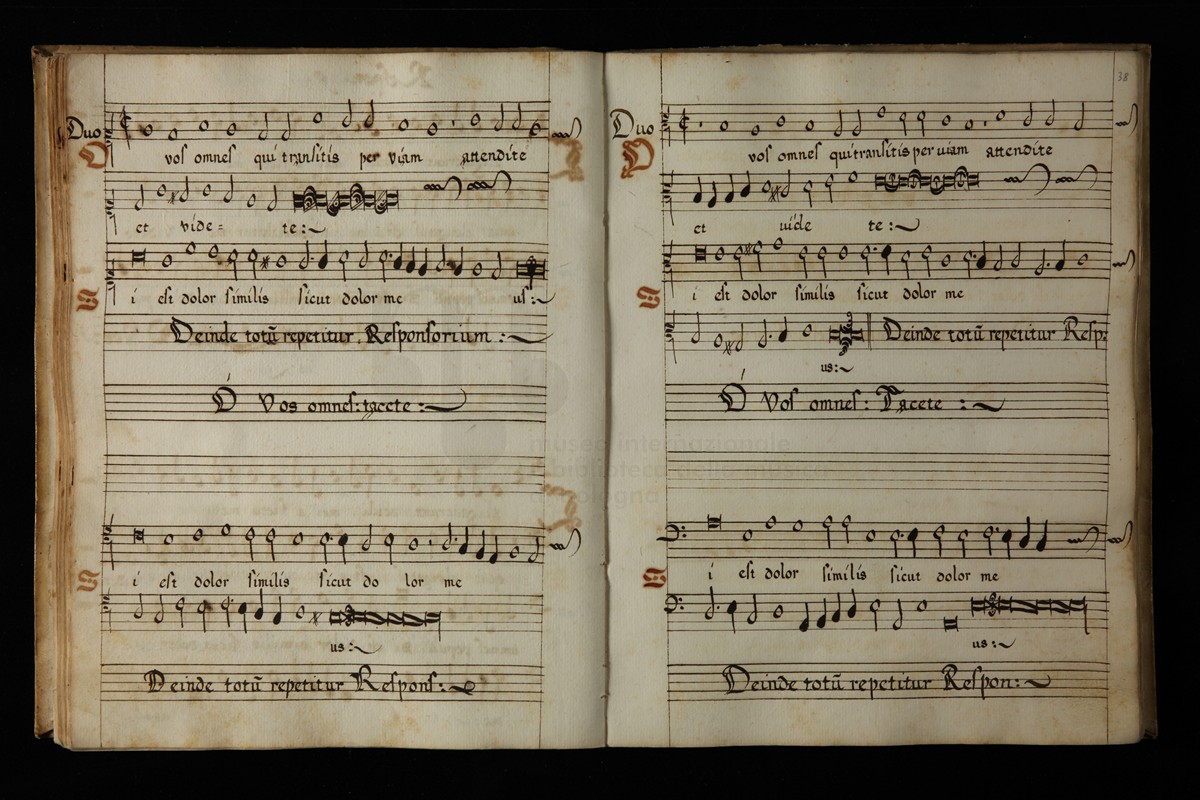 Duo
O vos omnes qui transitis per viam attendite
et vide= te:~
S i est dolor similis sicut dolor me us:~
Deinde totū repetitur Responsorium :~
O vos omnes: tacete :~
S i est dolor similis sicut do lor me
us:~
Deinde totū repetitur Respons:~
38
Duo
O vos omnes qui transitis per uiam attendite
et uide te:~
S i est dolor similis sicut dolor me
Deinde totū repetitur Resp:
us:~
O vos omnes: Tacete :~
S i est dolor similis sicut dolor me
us:~
Deinde totū repetitur Respon:~
museo internazionale
e biblioteca della musica
di bologna